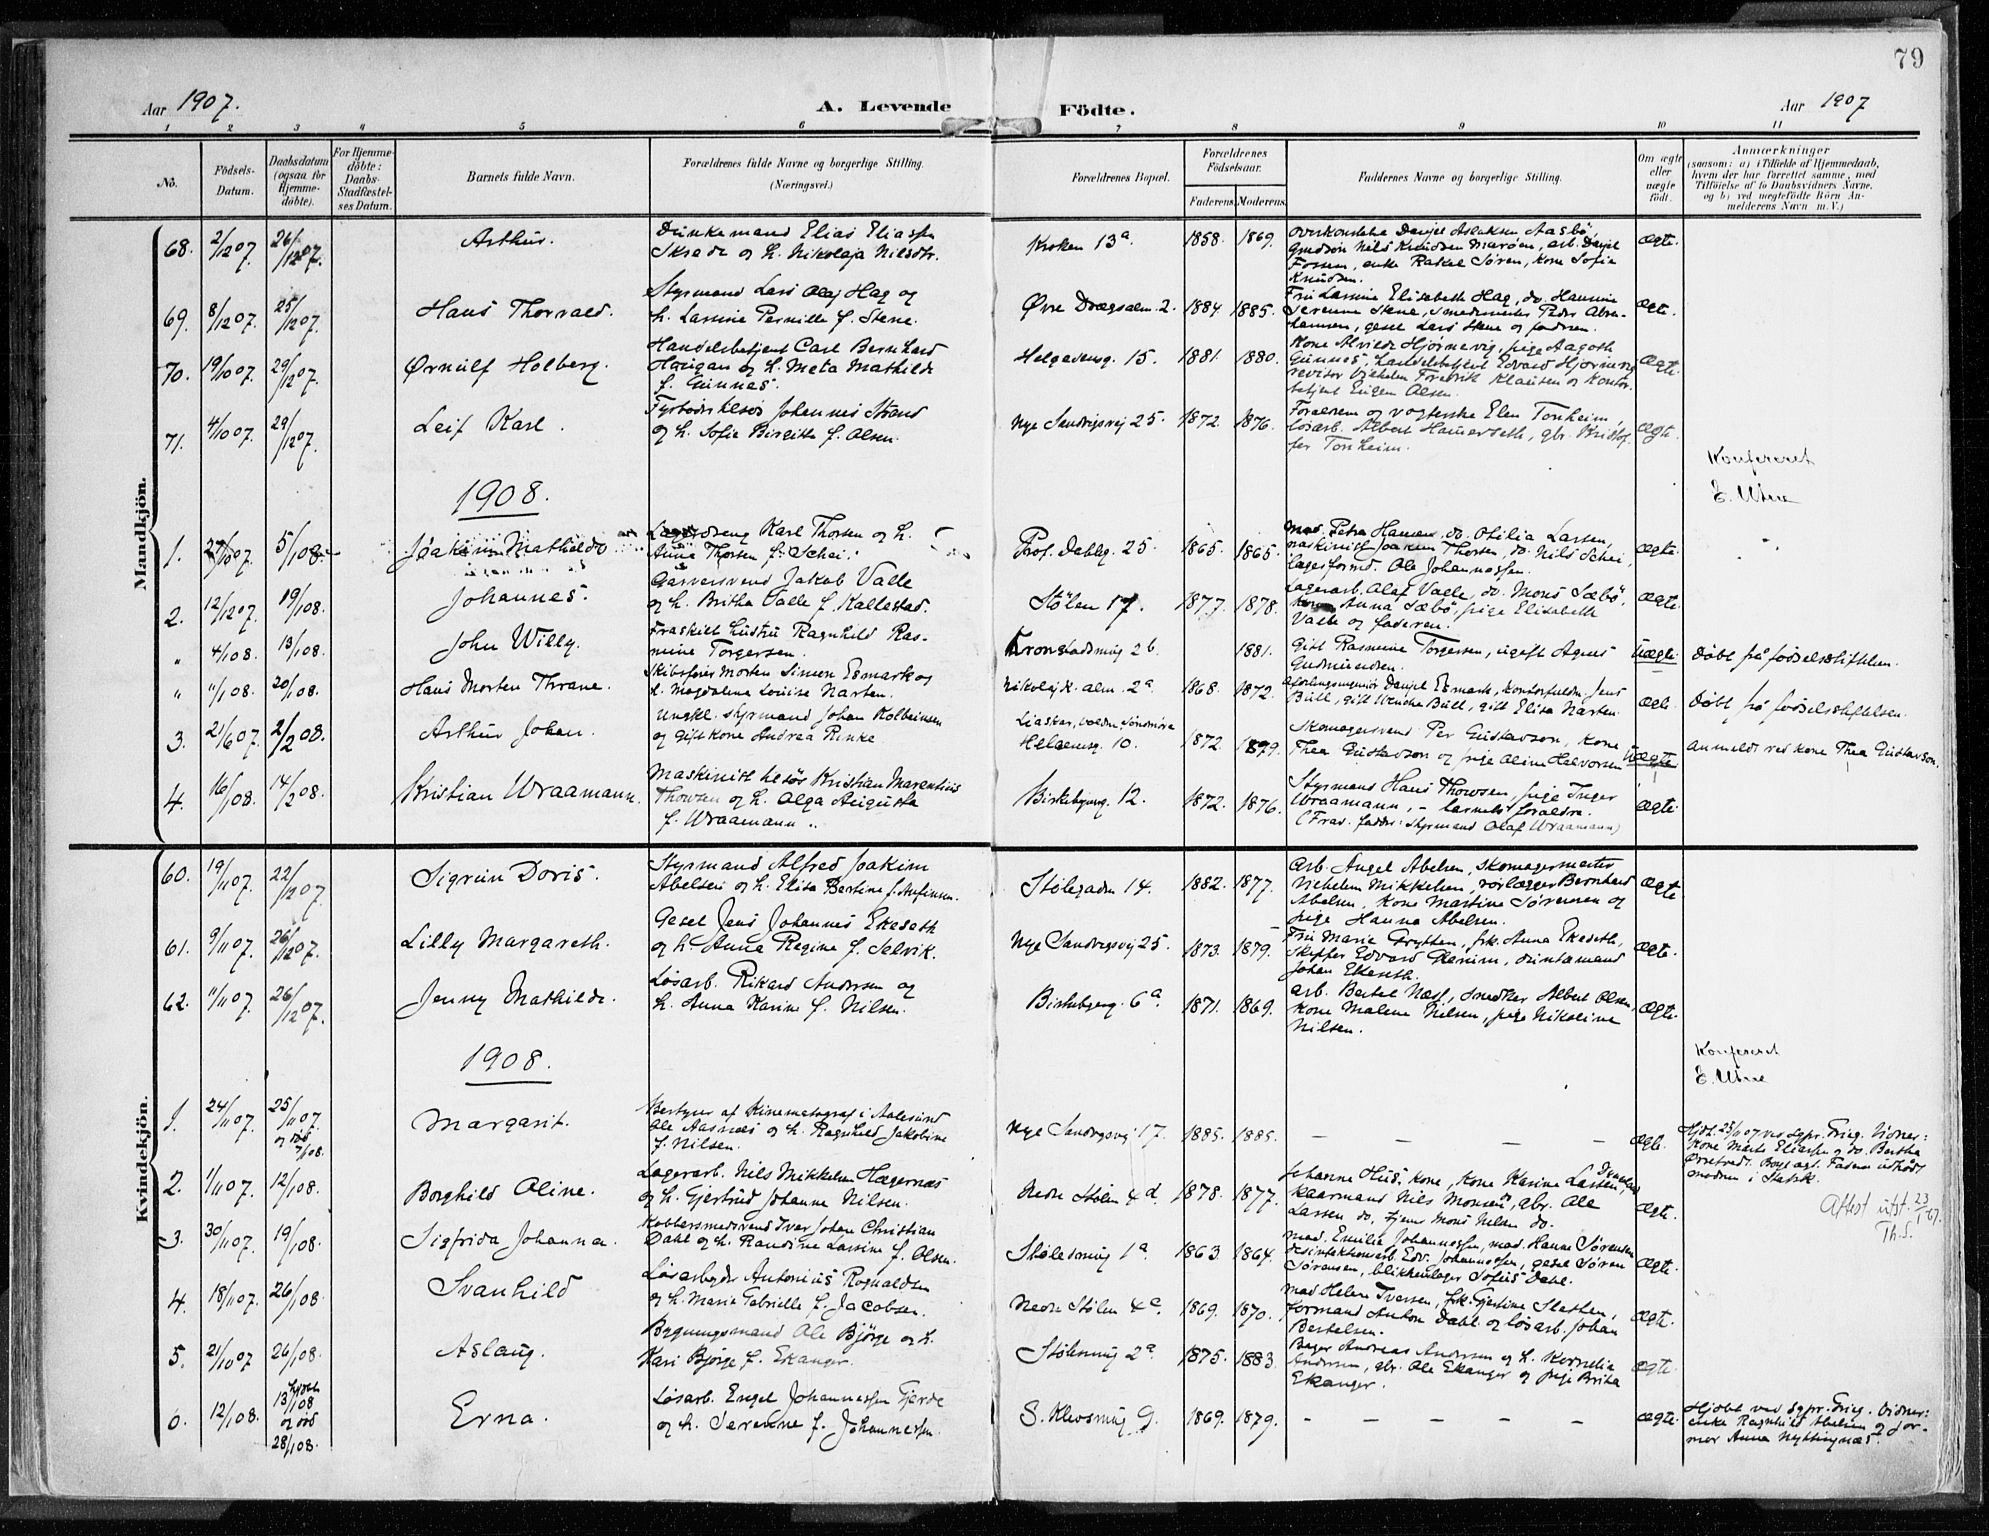 79
Aar 1907.
A. Levende
Födte.
Aar 1907
1 2 3 4 5 6 7 8 9 10 11
No.
Födsels-
Datum.
Daabsdatum
(ogsaa for
Hjemme-
döbte).
For Hjemme-
döbte:
Daabs-
Stadfæstel-
ses Datum.
Barnets fulde Navn.
Forældrenes fulde Navne og borgerlige Stilling.
(Næringsvei.)
Forældrenes Bopæl.
Forældrenes
Födselsaar.
Faderens. Moderens.
Faddernes Navne og borgerlige Stilling.
Om ægte
eller
uægte
födt.
Anmærkninger
(saasom: a) i Tilfælde af Hjemmedaab,
hvem der har forrettet samme, med
Tilföielse af to Daabsvidners Navne,
og b) ved uægtefödte Börn An-
melderens Navn m. V.)
Mandkjön.
68. 2/12 07. 26/12 07. Arthur.
Elias Eliassen
Skrede og h. Nikolaja Nilsdtr.
Kroken 13a. 1858. 1869.
overkonstabel Daniel Aslaksen Aasbö,
Nils Knudsen Maröen, arb. Daniel
Fossen, enke Rakel Sören, kone Sofie
Knudsen.
ægte.
69. 8/12 07. 25/12 07. Hans Thorvald.
Styrmand Lars Olaj Hag og
h. Lassine Pernille f. Stene.
Øvre Drægsalm. 2. 1884 1885.
Fru Lassine Elisabeth Hag, do. Hansine
Serenine Stene, Smedmester Peder Abra-
hamsen, gesel Lars Stene og faderen.
ægte.
70. 19/10 07. 29/12 07. Ørnulf Holberg.
Handelsbetjent Carl Bernhard
Haugan og h. Meta Mathilde
f. Gunnas.
Helgesensg. 15. 1881. 1880.
Kone Alvilde Hjørnevig, pige Aagoth
Gunnes, handelsbetjent Edvard Hjørnevig
revisor Vilhelm Fredrik Klausen og Kontor-
betjent Eugen Olsen.
ægte.
71. 4/10 07. 29/12 07. Leif Karl.
Fyrböder Johannes Strand
og h. Sofie Birgitte f. Olsen.
Nye Sandvigsvej 25. 1872. 1876.
Forældrene og vogterske Elen Tonheim,
løsarb. Albert Hamerseth, gbr. Kristof-
fer Tonheim.
ægte.
Konfereret
E. Utne
1908.
1. 27/10 07. 5/1 08. Joakim Matheldo
Karl Thorsen og h.
Anna Thorsen f. Schei.
Prof. Dahlsg. 25. 1865. 1865.
Mad. Petra Hansen, do. Otilia Larsen,
maskinist Joakim Thorsen, do. Nils Schei,
lagesformd. Ole Johannessen.
ægte.
2. 12/12 07. 19/1 08. Johannes.
Garversvend Jakob Valle
og h. Britha Valle f. Kallestad.
Stølen 17. 1877. 1878.
Lagerarb. Olaf Valle, do. Mons Sæbö,
kone Anna Sæbö, pige Elisabeth
Valle og faderen.
ægte.
" 4/1 08. 13/1 08. John Willy.
Fraskilt hustru Ragnhild Ras-
mine Torgersen.
Kronstadsmug 2b. 1881.
Gift Rasmine Torgersen, ugift Agnes
Gudmundsen.
Uægte.
Døbt på fødselsstiftelsen.
" 11/1 08. 20/1 08. Hans Morten Thrane.
Skibsfører Morten Simon Esmark og
h. Magdalena Louise Narten.
Nikolajk. alm. 2a. 1868. 1872.
Daniel Esmark, Jens
Bull, gift Wenche Bull, gift Elisa Narten.
ægte.
Døbt på fødselsstiftelsen.
3. 21/6 07. 2/2 08. Arthur Johan.
Ungkl. styrmand Johan Kolbeinsen
og gift kone Andrea Rinke
Liaskar, Volden Søndmøre
Helgesensg. 10. 1872. 1879.
Skomagersvend Per Gustavson, kone
Thea Gustavson og pige Aline Halvorsen
Uægte
Anmeldt ved kone Thea Gustavson.
4. 16/1 08. 14/2 08. Kristian Wraamann.
Maskinist Kristian Marentius
Thowsen og h. Olga Augusta
f. Wraamann.
Birkebeinerg. 12. 1872. 1876.
Styrmand Hans Thowsen, pige Inger
Wraamann, – barnets forældre.
(Frav. fadder: styrmand Olaf Wraamann)
ægte.
Kvindekjön.
60. 19/11 07. 22/12 07. Sigrun Doris.
Styrmand Alfred Joakim
Abelsen og h. Elisa Bertine f. Anfinsen.
Stølegaden 14. 1882. 1877.
Arb. Angel Abelsen, skomagermester
Vilhelm Mikkelsen, rørlægger Bernhard
Abelsen, kone Martine Sørensen og
pige Hanna Abelsen.
ægte.
61. 9/11 07. 26/12 07. Lilly Margareth.
Gesel Jens Johannes Ekeseth
og h. Anna Regine f. Selvik.
Nye Sandvigsvej 25. 1873. 1879.
Fru Marie Grytten, frk. Anna Ekeseth,
skipper Edvard
Johan Ekeseth.
ægte.
62. 11/11 07. 26/12 07. Jenny Mathilde.
Løsarb. Rikard Andersen og
h. Anna Karine f. Nilsen.
Birkebeinerg. 6a. 1871. 1869.
Arb. Bertel Næss, smedker Albert Olsen,
Kone Malene Nilsen, pige Nikoline
Nilsen.
ægte.
Konfereret
E. Utne
1908.
1. 24/11 07. 25/11 07. Margarit.
Bestyrer af Kinematograf i Aalesund
Ole Aasnæs og h. Ragnhild Jakobine
f. Nilsen.
Nye Sandvigsvej 17. 1885. 1885.
– – – –
ægte.
Hjdt. 25/11 07 ved sgpr. Frieg. Vidner:
Kone Marta Eliassen og do. Bertha
Fadern udhødt
moderen i Statsk.
2. 1/11 07. 12/1 08. Borghild Oline.
Lagerarb. Nils Mikkelsen Hægernæs
og h. Gjertrud Johanne Nilsen.
Nedre Stølen 4d. 1878. 1877.
Johanne Hus, kone, kone Karine Larsen,
Nils Monsen, gbr. Ole
Larsen do, Mons Nilsen do.
ægte.
Attest utst. 23/1 67.
Th.S.
3. 30/11 07. 19/1 08. Sigfrida Johanna.
Kobbersmedsvend Ivar Johan Christian
Dahl og h. Randine Lassine f. Olsen.
Stølesmug 1a. 1863 1864.
Mad. Emilie Johannessen, mad. Hanna Sørensen
desinfektionsarb. Edv. Johannessen, gesel Søren
Sørensen, blikkenslager Sofus Dahl.
ægte.
4. 18/11 07. 26/1 08. Svanhild
Løsarbejder Antonius Rognaldsen
og h. Marie Gabrielle f. Jacobsen.
Nedre Stølen 4c. 1869. 1870.
Mad Helene Iversen, frk. Gjertine Slethen,
formand Anton Dahl og løsarb. Johan
Bertelsen.
ægte.
5. 21/10 07. 26/1 08. Aslaug.
Bygningsmand Ole Bjørge og h.
Kari Bjørge f. Ekanger.
Stølesmug 2a. 1875. 1883.
Bager Andreas Andersen og h. Kornelia
Andersen, gbr. Ole Ekanger og pige Britha
Ekanger.
ægte.
6. 12/1 08.
hjdt.
13/1 08
og død
28/1 08.
Erna.
Løsarb. Engel Johannessen Gjerde
og h. Serenine f. Johannessen.
S. Klevsmug 9. 1869. 1879.
– – – –
ægte.
Hjdbt ved Sgpr. Frieg. Vidner:
enke Ragnhild Abelsen og jor-
mor Anna Nyttingnæs.